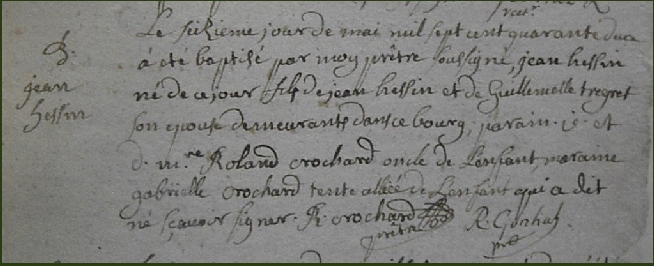 B.
jean
hessin
Le seizieme jour de mai mil sept cent quarante deux
a été baptisé par moy prêtre soussigné, jean hessin
né de ce jour fils de jean hessin et de Guillemette tregret
son epouse demeurants dans ce bourg, parain. et
d. m.re Roland Crochard oncle de Lenfant, maraine
gabrielle Crochard tente alliée de Lenfant qui a dit
né sçavoir signer. R. Crochard
prêtre
R. Gonhas
pre